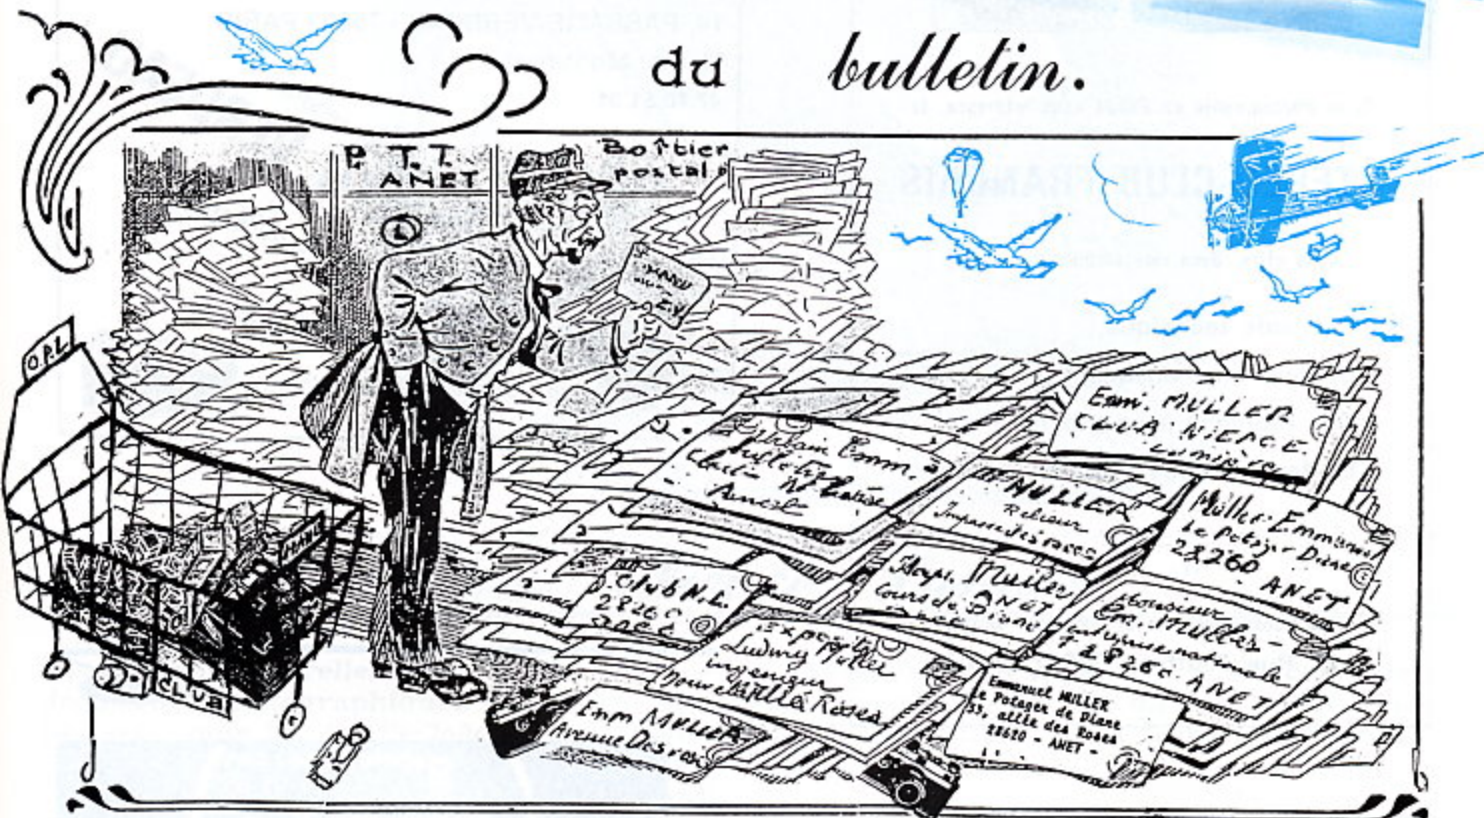 du bulletin.
P. T. T.
ANET
Boîtier
postal
O.P.L
MANU
E.V.
Emm. MULLER
CLUB NIEPCE
Lumière
Emm.
bulletin
Club N.
Anet
MULLER
Relieur
Impasse des roses
Müller Emmanuel
Le Potager Diane
28260
ANET
Club N.L.
28260
Anet
Muller
ANET
Cours de Diane
Monsieur
Em. Muller
28260. ANET
Ludwig Muller
Emm MULLER
Avenue Des roses
Emmanuel MULLER
Le Potager de Diane
55, allée des Roses
28620 - ANET -
CLUB